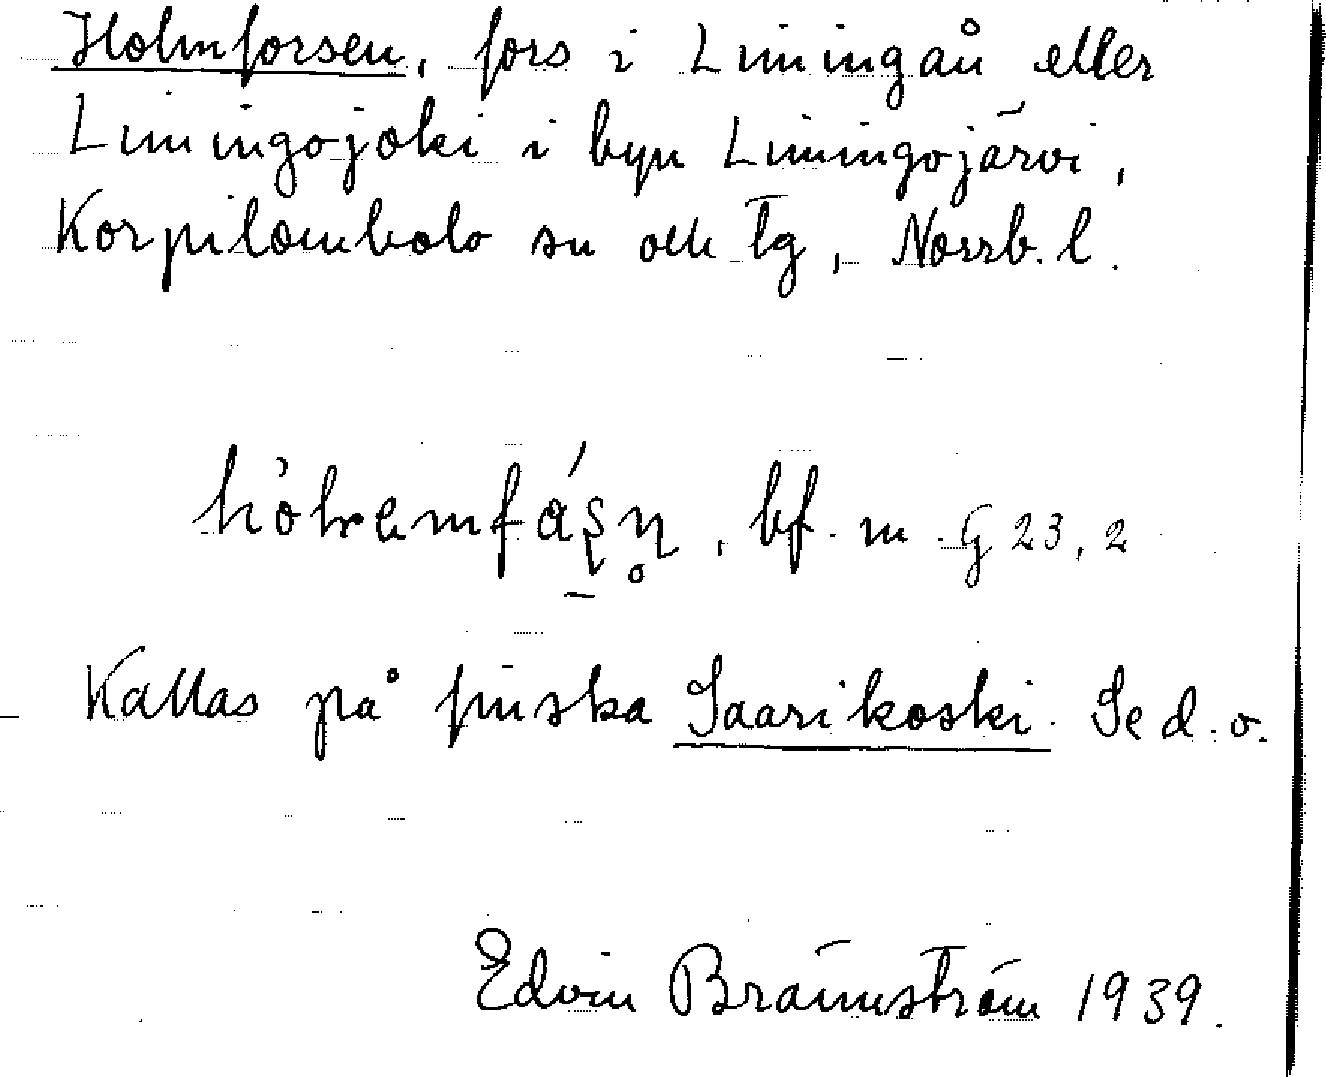 Holmforsen, fors i Liningån eller
Liningojoki i byn Liningojärvi,
Korpilombolo sn och tg, Norrb. l.
bf. m. G 23, 2
Kallas på finska Saarikoski. Se d. o.
Edvin Brännström 1939.